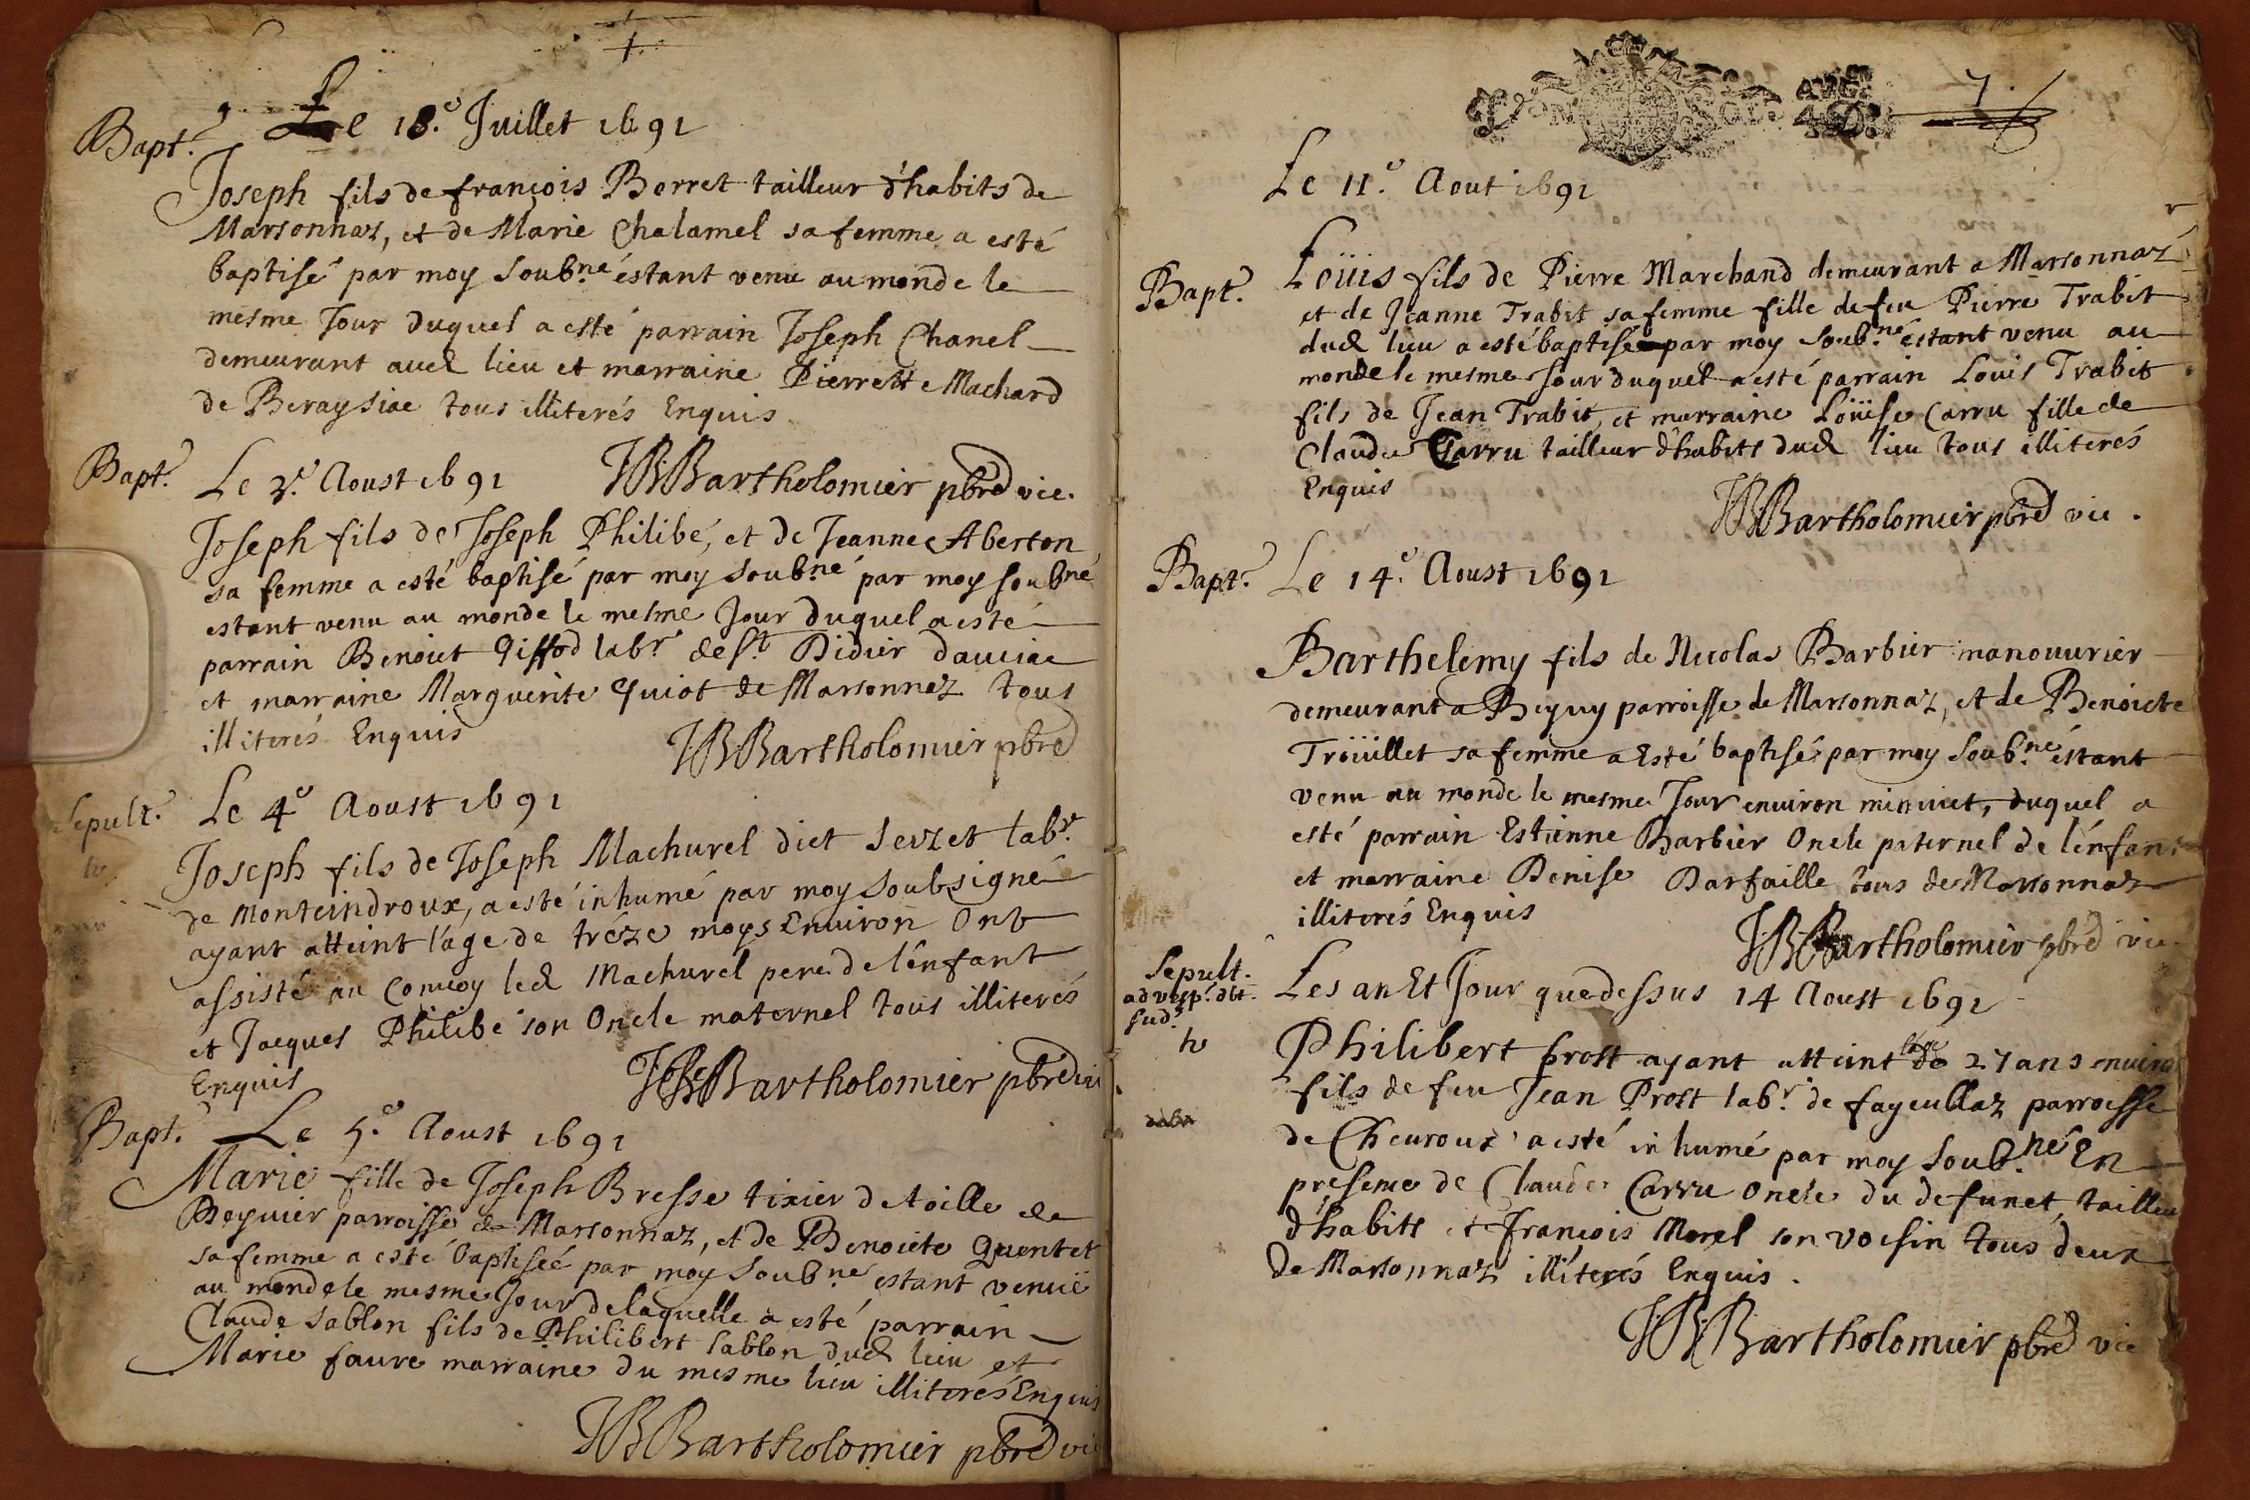 Bapt.
Le 18.e Juillet 1691
Joseph fils de françois Borret tailleur d'habits de
Marsonnaz, et de Marie Chalamel sa femme a esté
baptisé par moy soub.né estant venu au monde le
mesme Jour duquel a esté parrain Joseph Chanel
demeurant aud lieu et marraine Pierrette Machard
de Beraysiac tous illiterés Enquis
JBBartholomier pbre vic.
Bapt.
Le 3.e Aoust 1691
Joseph fils de Joseph Philibé, et de Jeanne Aberton
sa femme a esté baptisé par moy soub.né par moy soubné
estant venu au monde le mesme Jour duquel a esté
parrain Benoict Giffod labr de St Didier dauciac
et marraine Marguerite Guiot de Marsonnaz tous
illiterés Enquis
JBBartholomier pbre
Sepult.
Le 4e Aoust 1691
Joseph fils de Joseph Machurel dict Serzet labr.
de Monteindroux, a esté inhumé par moy soubsigné
ayant atteint l'age de tréze moys Environ Ont
assisté au Convoy led Machurel pere de l'énfant
et Jacques Philibé son Oncle maternel tous illiterés
Enquis
JBBartholomier pbre vi
Bapt.
Le 5.e Aoust 1691
Marie fille de Joseph Bresse tixier de toille de
Beyvier parroisse de Marsonnaz, et de Benoicte Quentet
sa femme a esté baptiseé par moy Soub.né estant venuë
au monde le mesme Jour delaquelle a esté parrain
Claude Sablon fils de Philibert Sablon dud lieu et
Marie faure marraine du mesme lieu illiterés Enquis
JBBartholomier pbre vi
7.
Le 11.e Aout 1691
Bapt.
Loüis fils de Pierre Marchand demeurant a Marsonnaz
et de Jeanne Trabit sa femme fille de feu Pierre Trabit
dud lieu a esté baptisé par moy Soub.né estant venu au
monde le mesme Jour duquel a esté parrain Louis Trabit
fils de Jean Trabit, et marraine Loüise Carru fille de
Claude Carru tailleur d'habits dud lieu tous illiterés
Enquis
JBBartholomier pbre vic.
Bapt.
Le 14.e Aoust 1691
Barthelemy fils de Nicolas Barbier manouurier
demeurant a Beyvy parroisse de Marsonnaz, et de Benoicte
Troüillet sa femme a Esté baptisé par moy Soub.né éstant
venu au monde le mesme Jour environ minuict, duquel a
esté parrain Estienne Barbier Oncle paternel de l'énfant
et marraine Denise Darfaille tous de Marsonnaz
illiterés Enquis
JBBartholomier pbre vic.
Sepult.
Les an Et Jour que dessus 14 Aoust 1691
Philibert prost ayant atteint lage de 27 ans enuiro
fils de feu Jean Prost labr. de fayeullaz parroisse
de Cheuroux a esté inhumé par moy Soub.né En
présence de Claude Carru oncle du defunct, tailleu
d'habits et François Morel son voesin tous deux
de Marsonnaz illiterés Enquis.
JBBartholomier pbre vic